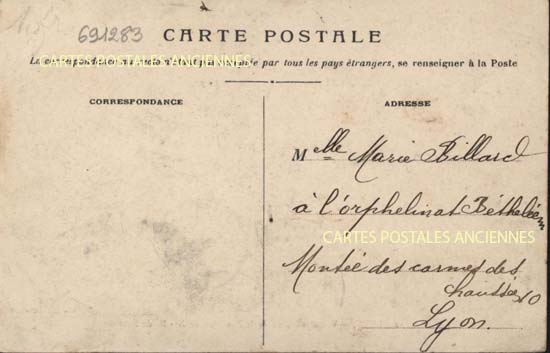 691283
CARTE POSTALE
La correspondance au recto n'est pas acceptée par tous les pays étrangers, se renseigner à la Poste
CARTES POSTALES ANCIENNES
CORRESPONDANCE
ADRESSE
Melle Marie Billard
à l'orphelinat Bétheléem
CARTES POSTALES ANCIENNES
Montée des carmes des
chaussés 10
Lyon.